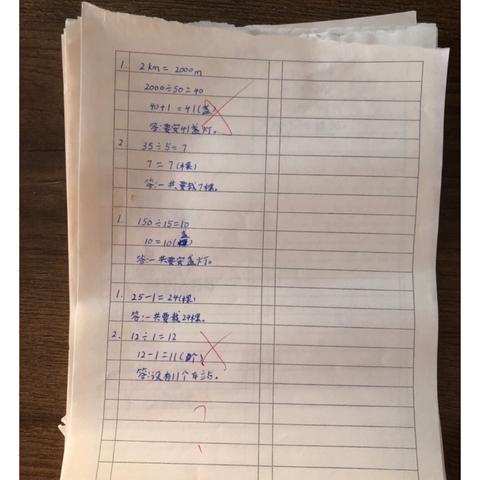 1. 2km = 2000m
2000÷50=40
40+1=41(盏)
答:要安41盏灯。
2 35÷5=7
7=7(棵)
答:一共要栽7棵。
1 150÷15=10
盏
10=10( )
答:一共要安盏灯。
1. 25-1=24(棵)
答:一共要栽24棵。
2. 12÷1=12
12-1=11(个)
答:设有11个车站。